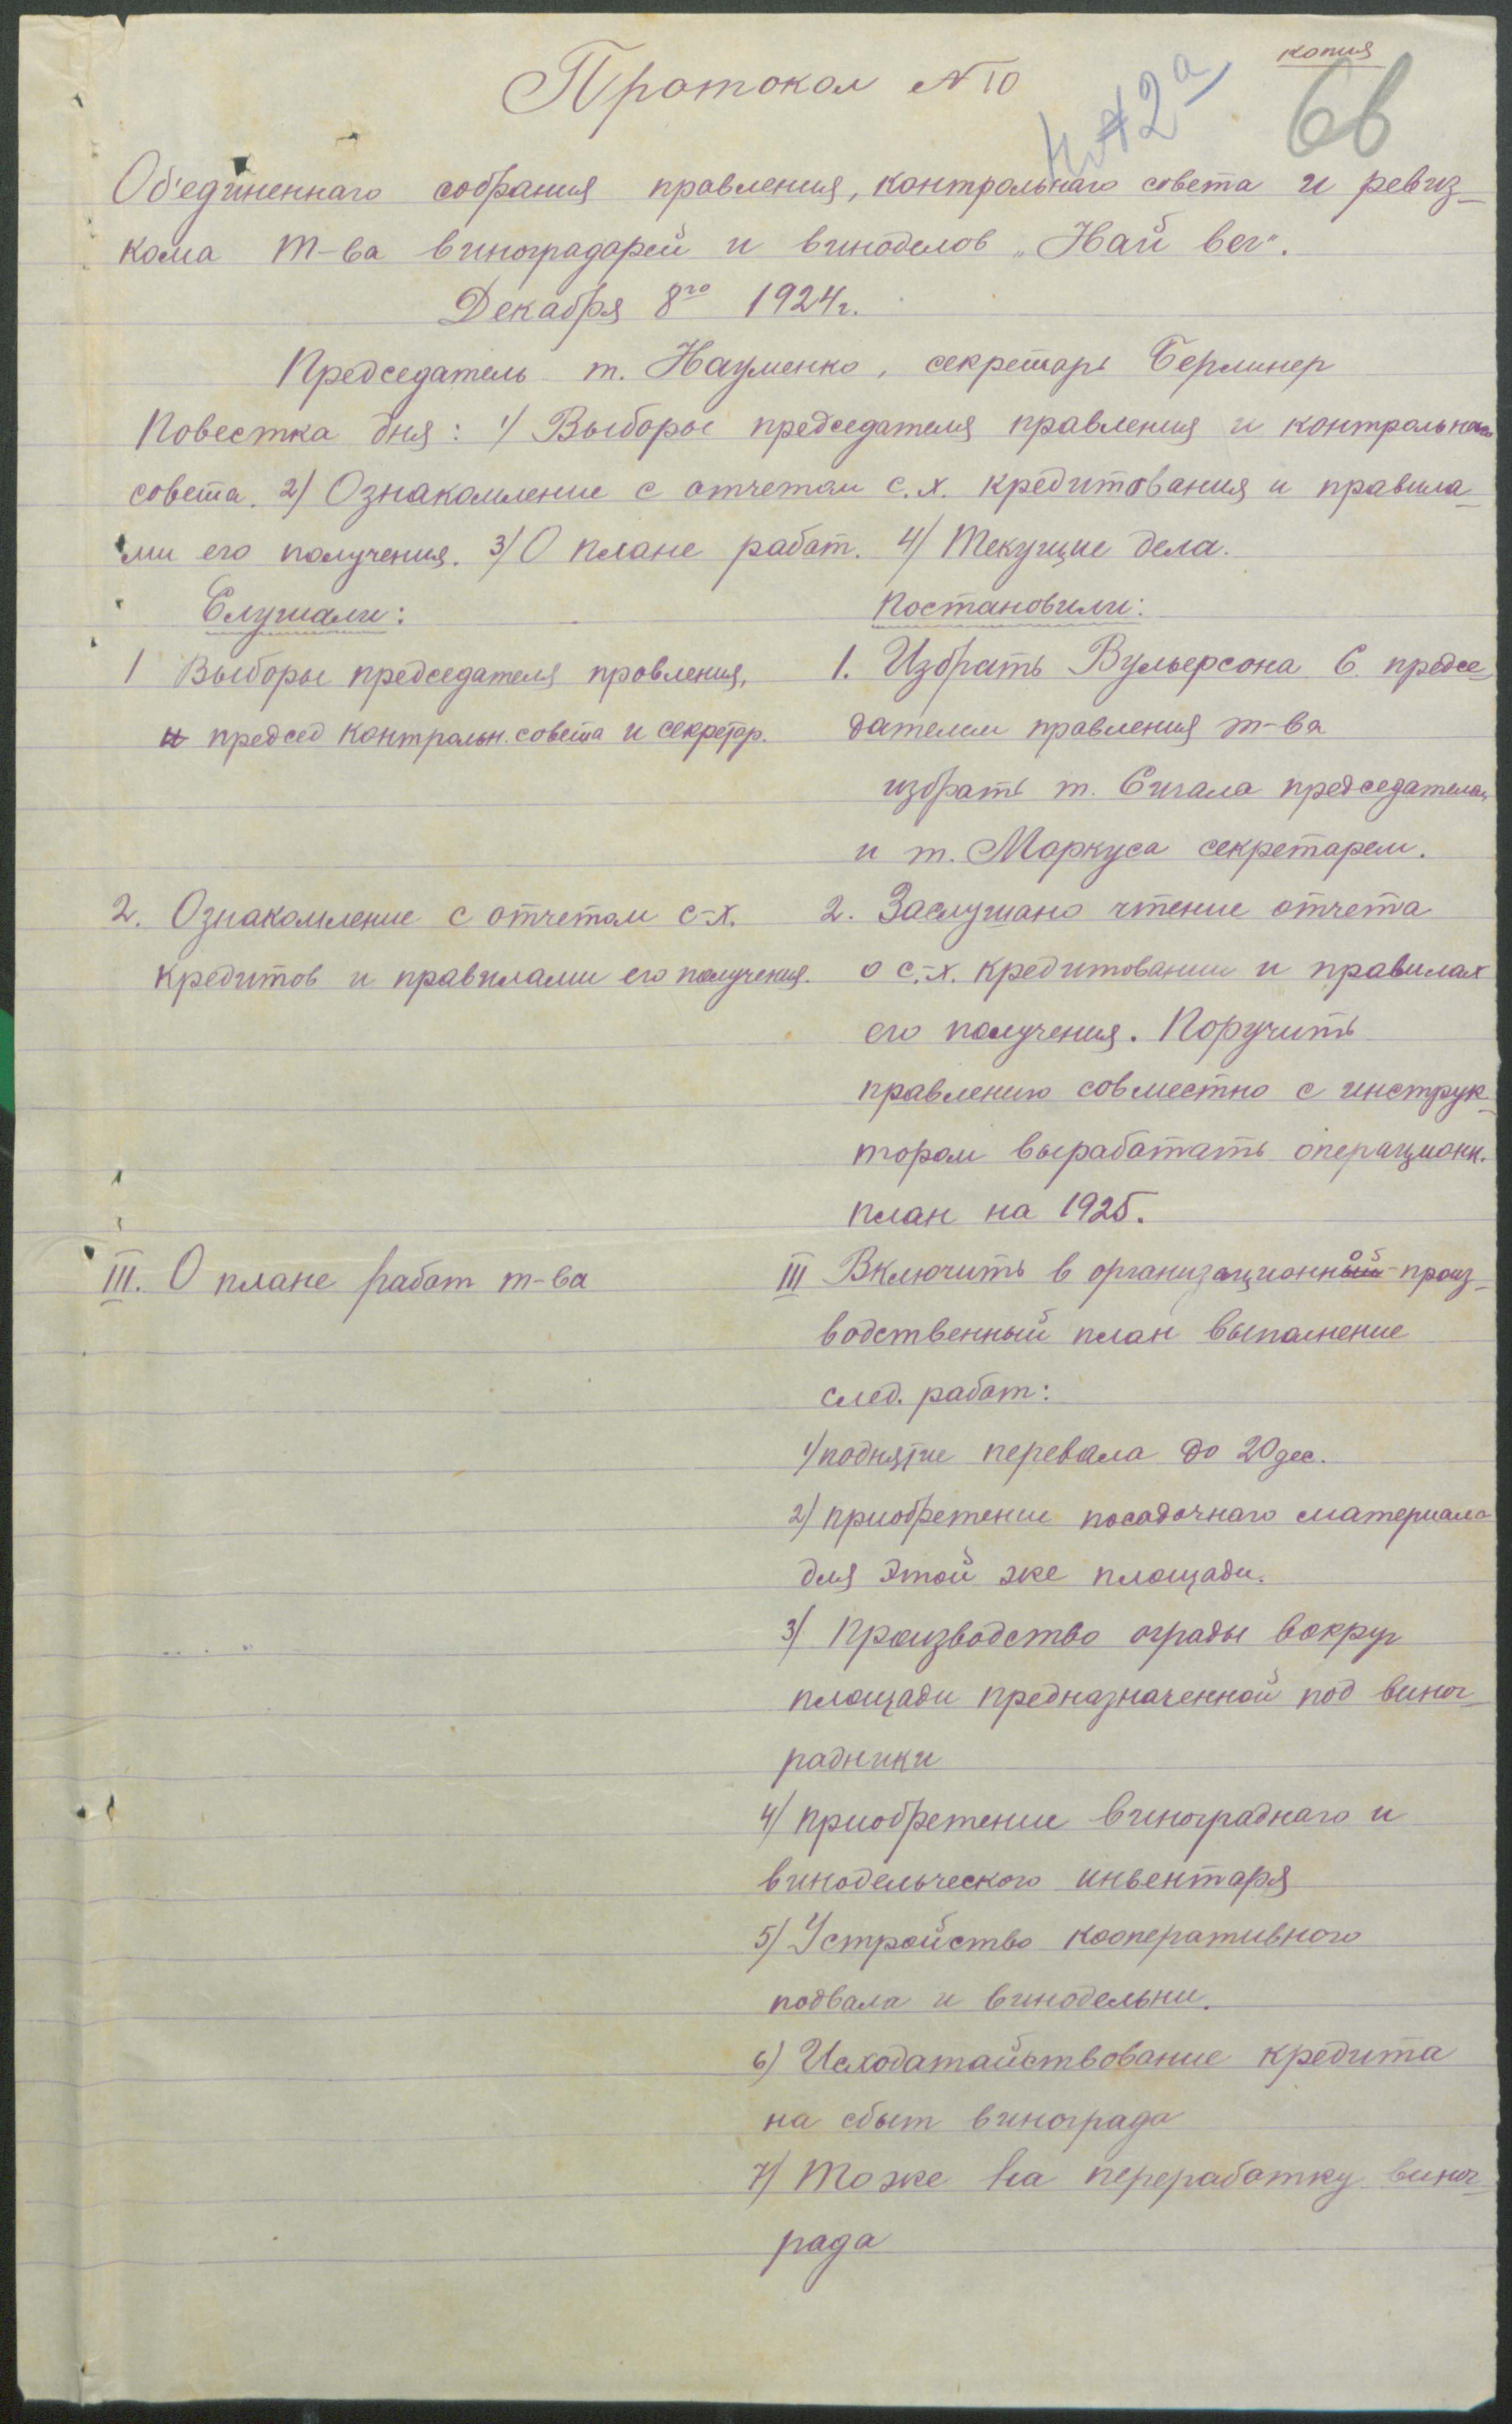 копия
Протокол N 10
66
Об'единеннаго собрания правления, контрольнаго совета и ревиз-
кома т-ва виноградарей и виноделов „Най вег".
Декабря 8го 1924г.
Председатель т. Науменко, секретарь Берлинер
Повестка дня: 1/ Выборы председателя правления и контрольнаго
совета. 2/ Ознакомление с отчетом с.х. кредитования и правила-
ми его получения. 3/ О плане работ. 4/ Текущие дела.
Слушали:
1 Выборы председателя провления,
и председ контрольн. совета и секретар.
2. Ознакомление с отчетом с-х.
кредитов и правилами его получения.
III. О плане работ т-ва
Постановили:
1. Избрать Вульферсона С. предсе-
дателем правления т-ва
избрать т. Сигала председателем
и т. Маркуса секретарем.
2. Заслушано чтение отчета
о с.-х. кредитовании и правилах
его получения. Поручить
правлению совместно с инструк-
тором выработать операционн.
план на 1925.
III Включить в организационной-произ-
водственный план выполнение
след. работ:
1/ поднятие перевала до 20 дес.
2/ приобретение посадочнаго материала
для этой же площади.
3/ Производство ограды вокруг
площади предназначенной под виног-
радники
4/ приобретение винограднаго и
винодельческого инвентаря
5/ Устройство кооперативного
подвала и винодельни.
6) Исходатайствование кредита
на сбыт винограда
7/ Тоже на переработку виног-
рада